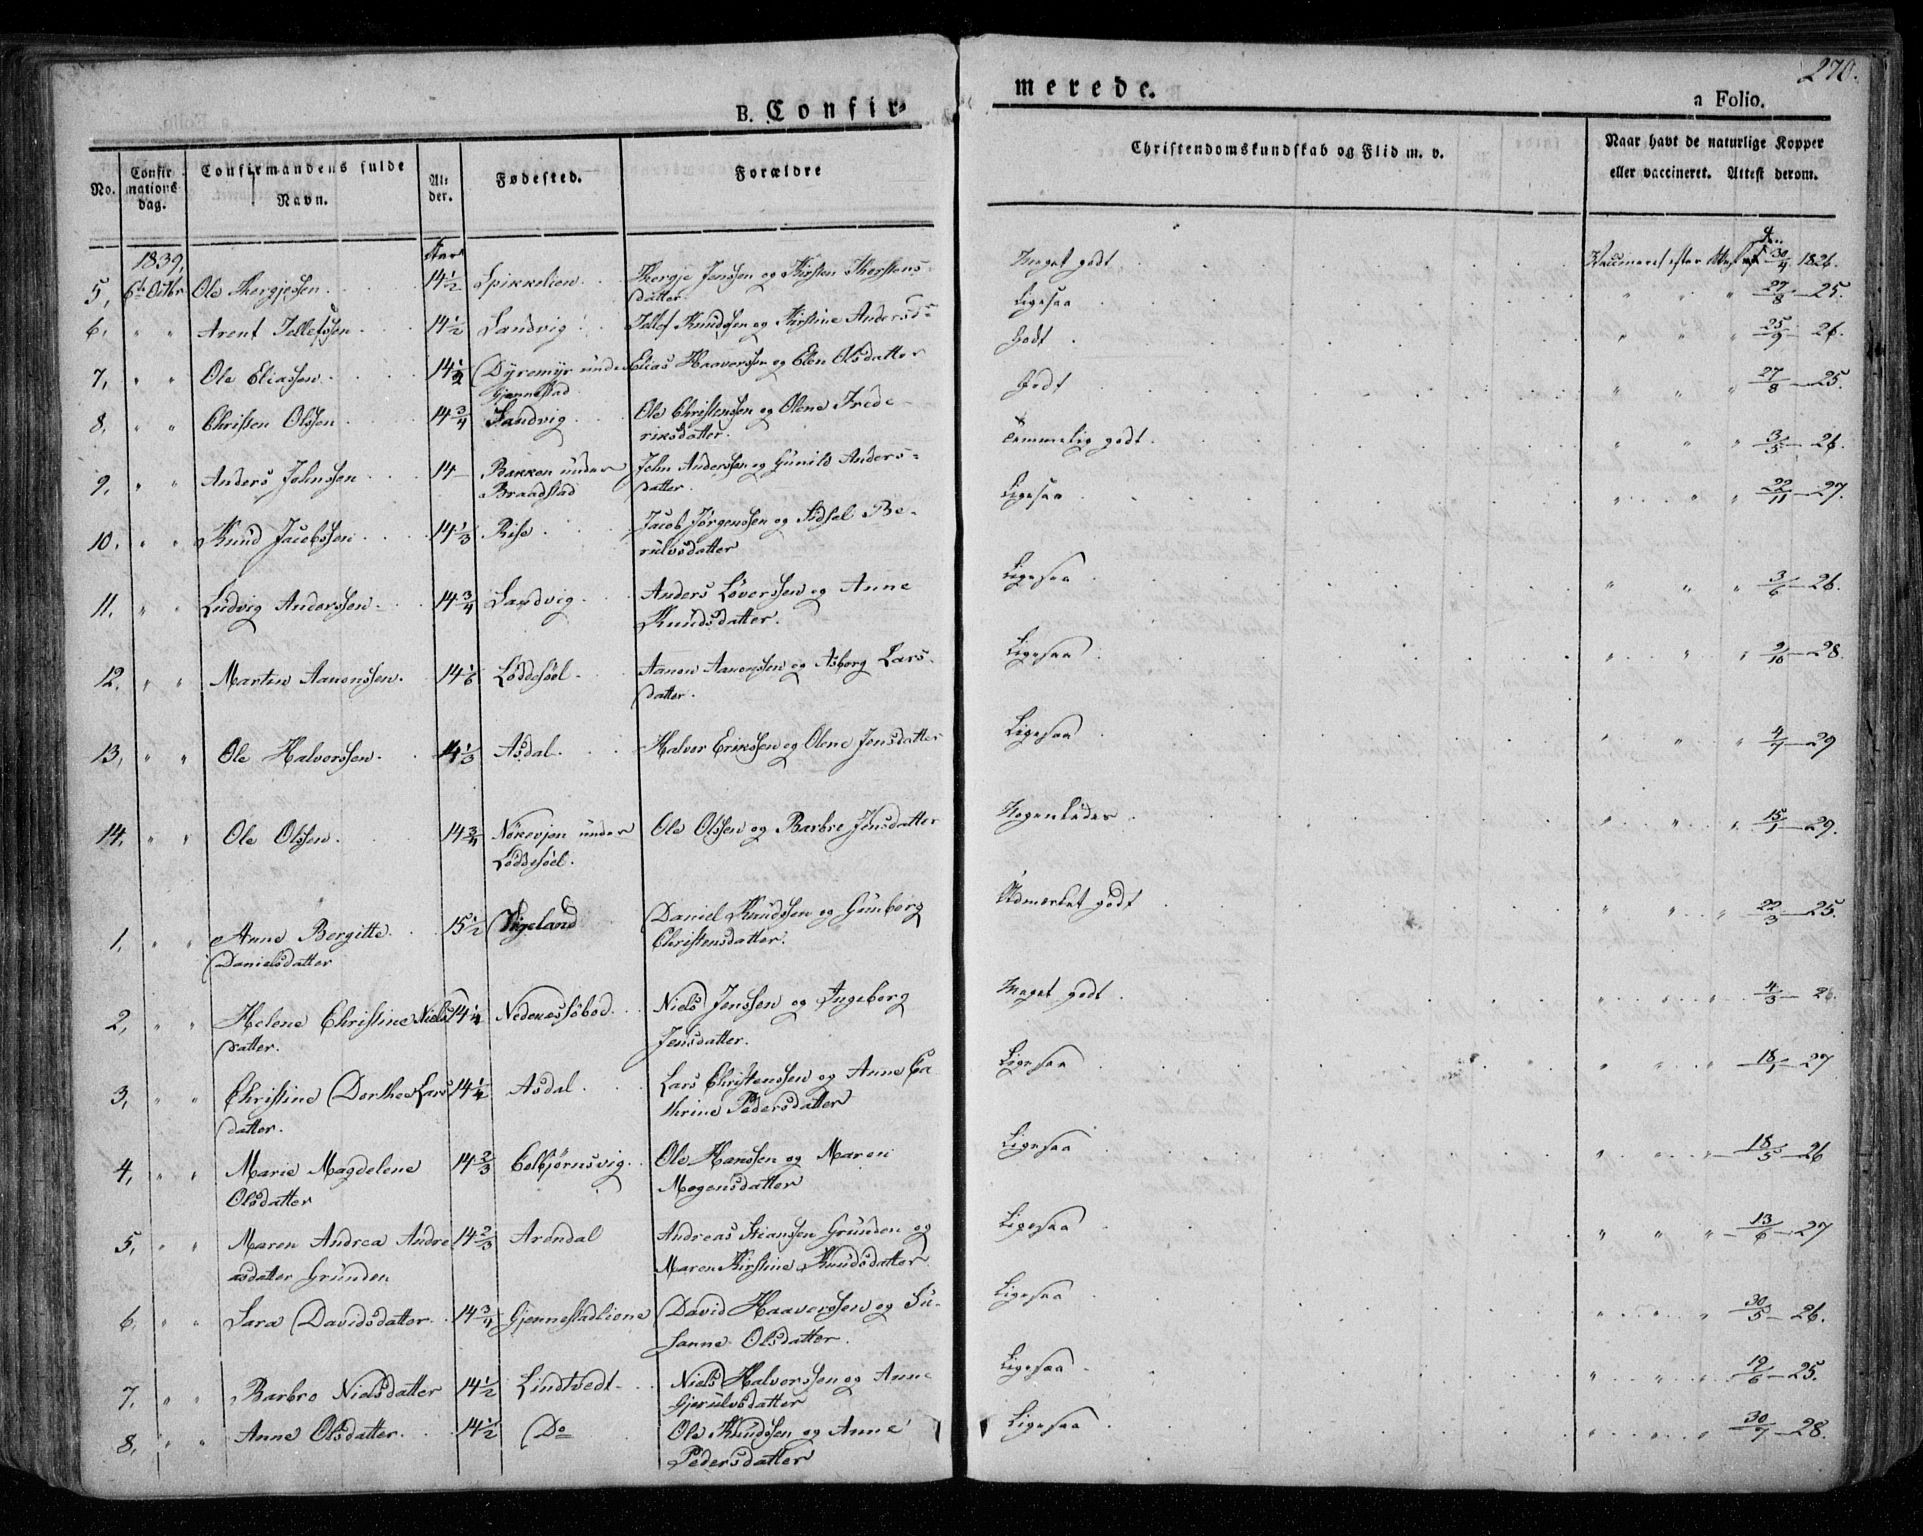 270.
B. Confir-
merede.
a Folio.
No.
Confir
mations
dag.
Confirmandens fulde
Navn.
Al-
der.
Fødested.
Forældre
Christendomskundskab og Flid m. v.
Naar havt de naturlige Kopper
eller vaccineret. Attest derom.
1839,
Aar
5, 6te Octbr Ole Thergjesen. 14 1/2 Spikkelien. Thergje Jenssen og Kirsten Therstens-
datter. Meget godt Vaccineret efter Attest af 30/4 1826.
6, " " Arent Jellefssen 14 1/2 Sandvig Jellef Knudssen og Kirstine Andersd- Ligesaa " " " 27/8 — 25.
7, " " Ole Eliassen. 14 1/2 Dyremyr under Elias Haaverssen og Elen Olsdatter
Gjennestad Godt " " " 25/9 — 26.
8, " " Christen Olssen 14 3/4 Sandvig Ole Christenssen og Olene Frede-
riksdatter. Godt " " " 27/8 — 25.
9, " " Anders Johnssen 14 — Bakken under John Anderssen og Gunild Anders-
Braadstad datter. Temmelig godt. " " " 3/5 — 26.
10, " " Knud Jacobssen 14 1/3 Rise Jacob Jørgenssen og Sidsel Be-
rulvsdatter Ligesaa " " " 22/11 — 27.
11. " " Ludvig Anderssen. 14 3/4 Sandvig. Anders Løverssen og Anne
Knudsdatter. Ligesaa " " " 3/6 — 26.
12. " " Martin Aanonssen. 14 1/6 Løddesøel. Aanon Aanonssen og Asborg Lars-
datter. Ligesaa " " " 9/10 — 28.
13, " " Ole Halvorssen. 14 1/3 Asdal. Halvor Erikssen og Olene Jensdatter Ligesaa " " " 4/7 — 29
14, " " Ole Olssen. 14 3/4 Nökevjen under Ole Olssen og Barbre Jensdatter
Löddesöel. Nogenledes " " " 15/1 — 29.
1, " " Anne Bergitte 15 1/2 Vigeland Daniel Knudssen og Gunborg
Danielsdatter Christensdatter. Udmærket godt " " " 22/3 — 25.
2, " " Helene Christine Niels- 14 1/4 Nedenæssöbod. Niels Jenssen og Ingeborg
datter. Jensdatter. Meget godt " " " 4/3 — 26.
3, " " Christine Dorthea Lars- 14 1/4 Asdal. Lars Christenssen og Anne Ca-
datter. thrine Pedersdatter Ligesaa " " " 18/1 — 27
4, " " Marie Magdelene 14 2/3 Colbjørnsvig. Ole Hanssen og Maren
Olsdatter Mogensdatter Ligesaa " " " 18/5 — 26
5, " " Maren Andrea Andre- 14 2/3 Arendal Andreas Stianssen Grunden og
asdatter Grunden Maren Kirstine Knudsdatter Ligesaa " " " 13/6 — 27
6. " " Sara Davidsdatter. 14 3/4 Gjennestadliene David Haaverssen og Su-
sanne Olsdatter. Ligesaa " " " 30/5 — 26.
7. " " Barbro Nielsdatter 14 1/2 Lindtvedt. Niels Halvorssen og Anne
Gjerulvsdatter Ligesaa " " " 19/6 — 25.
8, " " Anne Olsdatter. 14 1/2 Do Ole Knudssen og Anne
Pedersdatter Ligesaa " " " 30/7 — 28.